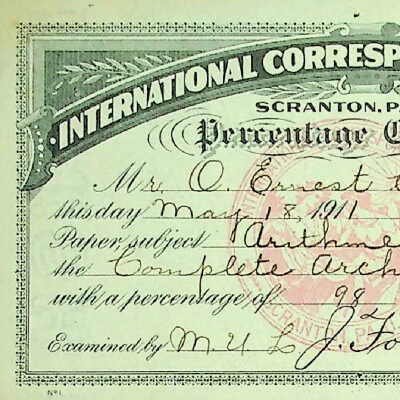 INTERNATIONAL CORRESP
SCRANTON, PA
Percentage C
Mr. O. Ernest
this day May 18, 1911
Paper, subject Arithme
the Complete Arch
with a percentage of 98
Examined by M. U. L. J. Fo
SCRANTON, PA.
No 1.